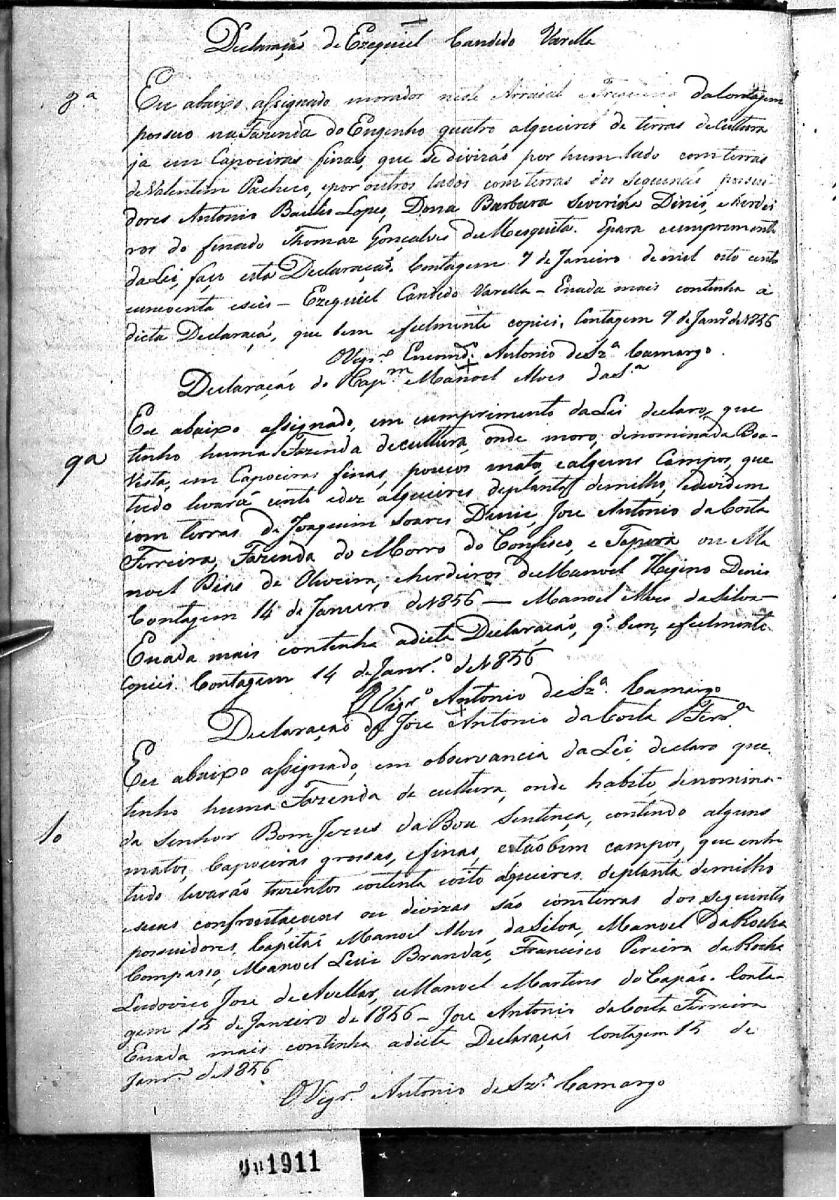 Declaração de Ezequiel Candido Varella
8ª
Eu abaixo assignado morador neste Arraial e Freguezia da Contagem
possuo na Fazenda do Engenho quatro alqueires de terras de Cultura
ja em Capoeiras finas, que se divizão por hum lado com terras
de Valentim Pacheco, e por outros lados com terras dos seguintes possui-
dores Antonio Lopes, Dona Barbara Severina Diniz, e herdei
ros do finado Thomaz Gonçalves de Mesquita. E para cumprimento
da Lei, faço esta Declaração. Contagem 7 de Janeiro de mil oito cento
cincoenta e seis – Ezequiel Candido Varella – E nada mais continha a
dicta Declaraçã, que bem e fielmente copiei. Contagem 7 de Janrº de 1856
O Vigrº Encomdº Antonio de Szª Camargo.
Declaraçaõ do Capm Manoel Alves da Sª
9ª
Eu abaixo assignado, em cumprimento da Lei declaro, que
tenho huma Fazenda de cultura, onde moro, denominada Boa-
Vista, em Capoeiras finas, poucos matos, e alguns Campos, que
tudo levará cento e dez alqueires de planta de milho, e dividem
com terras de Joaquim Soares Diniz, Jose Antonio da Costa
Ferreira, Fazenda do Morro do Confisco, e Tapera ou Ma
noel Dias de Oliveira, e herdeiros de Manoel Hegino Dinis
Contagem 14 de Janeiro de 1856 — Manoel Alves da Silva –
E nada mais continha a dicta Declaração, qº bem, e fielmente
copiei. Contagem 14 de Janrº de 1856
O Vigrº Antonio de Szª Camargo
Declaração de Jose Antonio da Costa Ferrª
10
Eu abaixo assignado, em observancia da Lei, declaro que
tenho huma Fazenda de cultura, onde habito, denomina-
da Senhor Bom Jezus da Boa Sentença, contendo alguns
matos, Capoeiras grossas, e finas, e taõbem campos, que entre
tudo levarão trezentos e oitenta e oito alqueires de planta de milho
e suas confrontaçoens ou divizas são com terras dos seguintes
possuidores, Capitaõ Manoel Alves da Silva, Manoel da Rocha
Manoel Luiz Brandaõ, Francisco Pereira da Rocha
Ludovico Jose de Avellar, e Manoel Martins do Capão. Conta-
gem 15 de Janeiro de 1856 – Jose Antonio da Costa Ferreira
E nada mais continha a dicta Declaraçaõ Contagem 15 de
Janrº de 1856
O Vigrº Antonio de Szª Camargo
1911